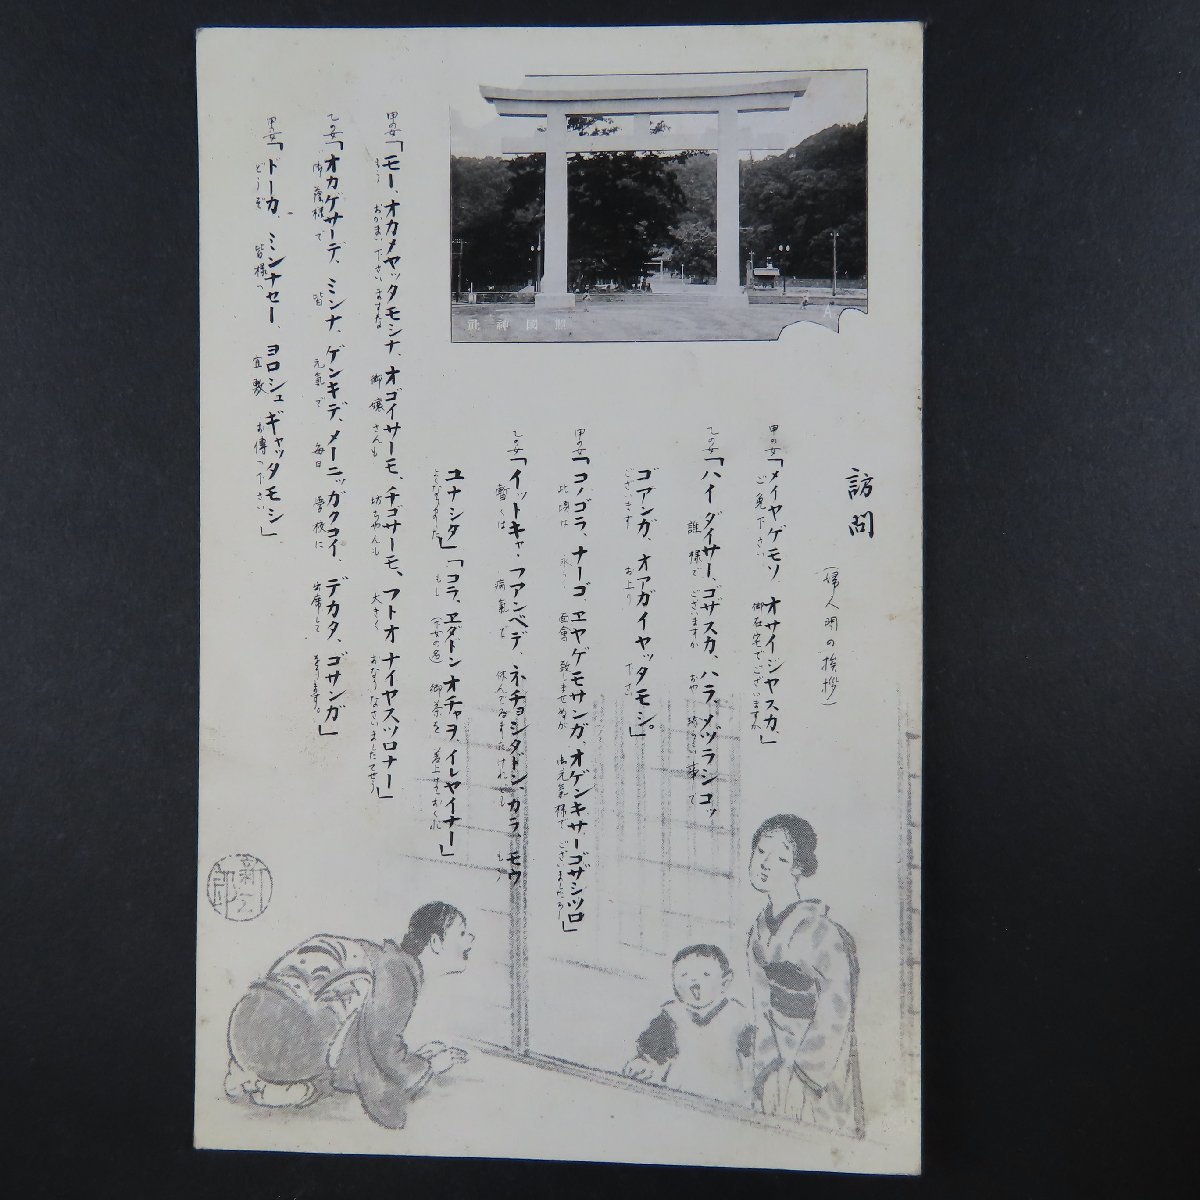 訪問
(婦人間の挨拶)
甲の女「メイヤゲモソ オサイジヤスカ」
ご免下さい 御在宅でございますか
乙の女「ハイ、ダイサー、ゴザスカ、ハラ、メヅラシコッ
誰様でございますか おや 珍らしい事で
ゴアンガ、オアガイヤッタモシ。」
ございます お上り 下さい
甲の女「コノゴラ、ナーゴ、ヱヤゲモサンガ、オゲンキサーゴザシツロ」
此頃は 永らく 面會 致しませぬが 御元氣様で ございましたらう
乙の女「イットキャ・フアンベデ、ネチョシダドン、カラ、モウ
暫くは 病氣で 休んでゐましたけれども もう
ユナシタ」「コラ、ヱダトン オチャヲ、イレヤイナー」
よくなりました もし 御茶を 差上げておくれ
甲の女「モー、オカメヤッタモシナ、オゴイサーモ、チゴサーモ、フトオ ナイヤスツロナー」
もう おかまい下さいますな 御嬢さんも 坊ちやんも 大きく おなりなさいましたでせう
乙の女「オカゲサーデ、ミンナ、ゲンキデ、メーニッガクコイ、デカタ、ゴサンガ」
御蔭様で 皆 元氣で 毎日 學校に 出席して 居ります
甲の女「ドーカ、ミンナセー、ヨロシュギャッタモシ」
どうぞ 皆様へ 宜敷 お傳へ下さい」
照國神社
A